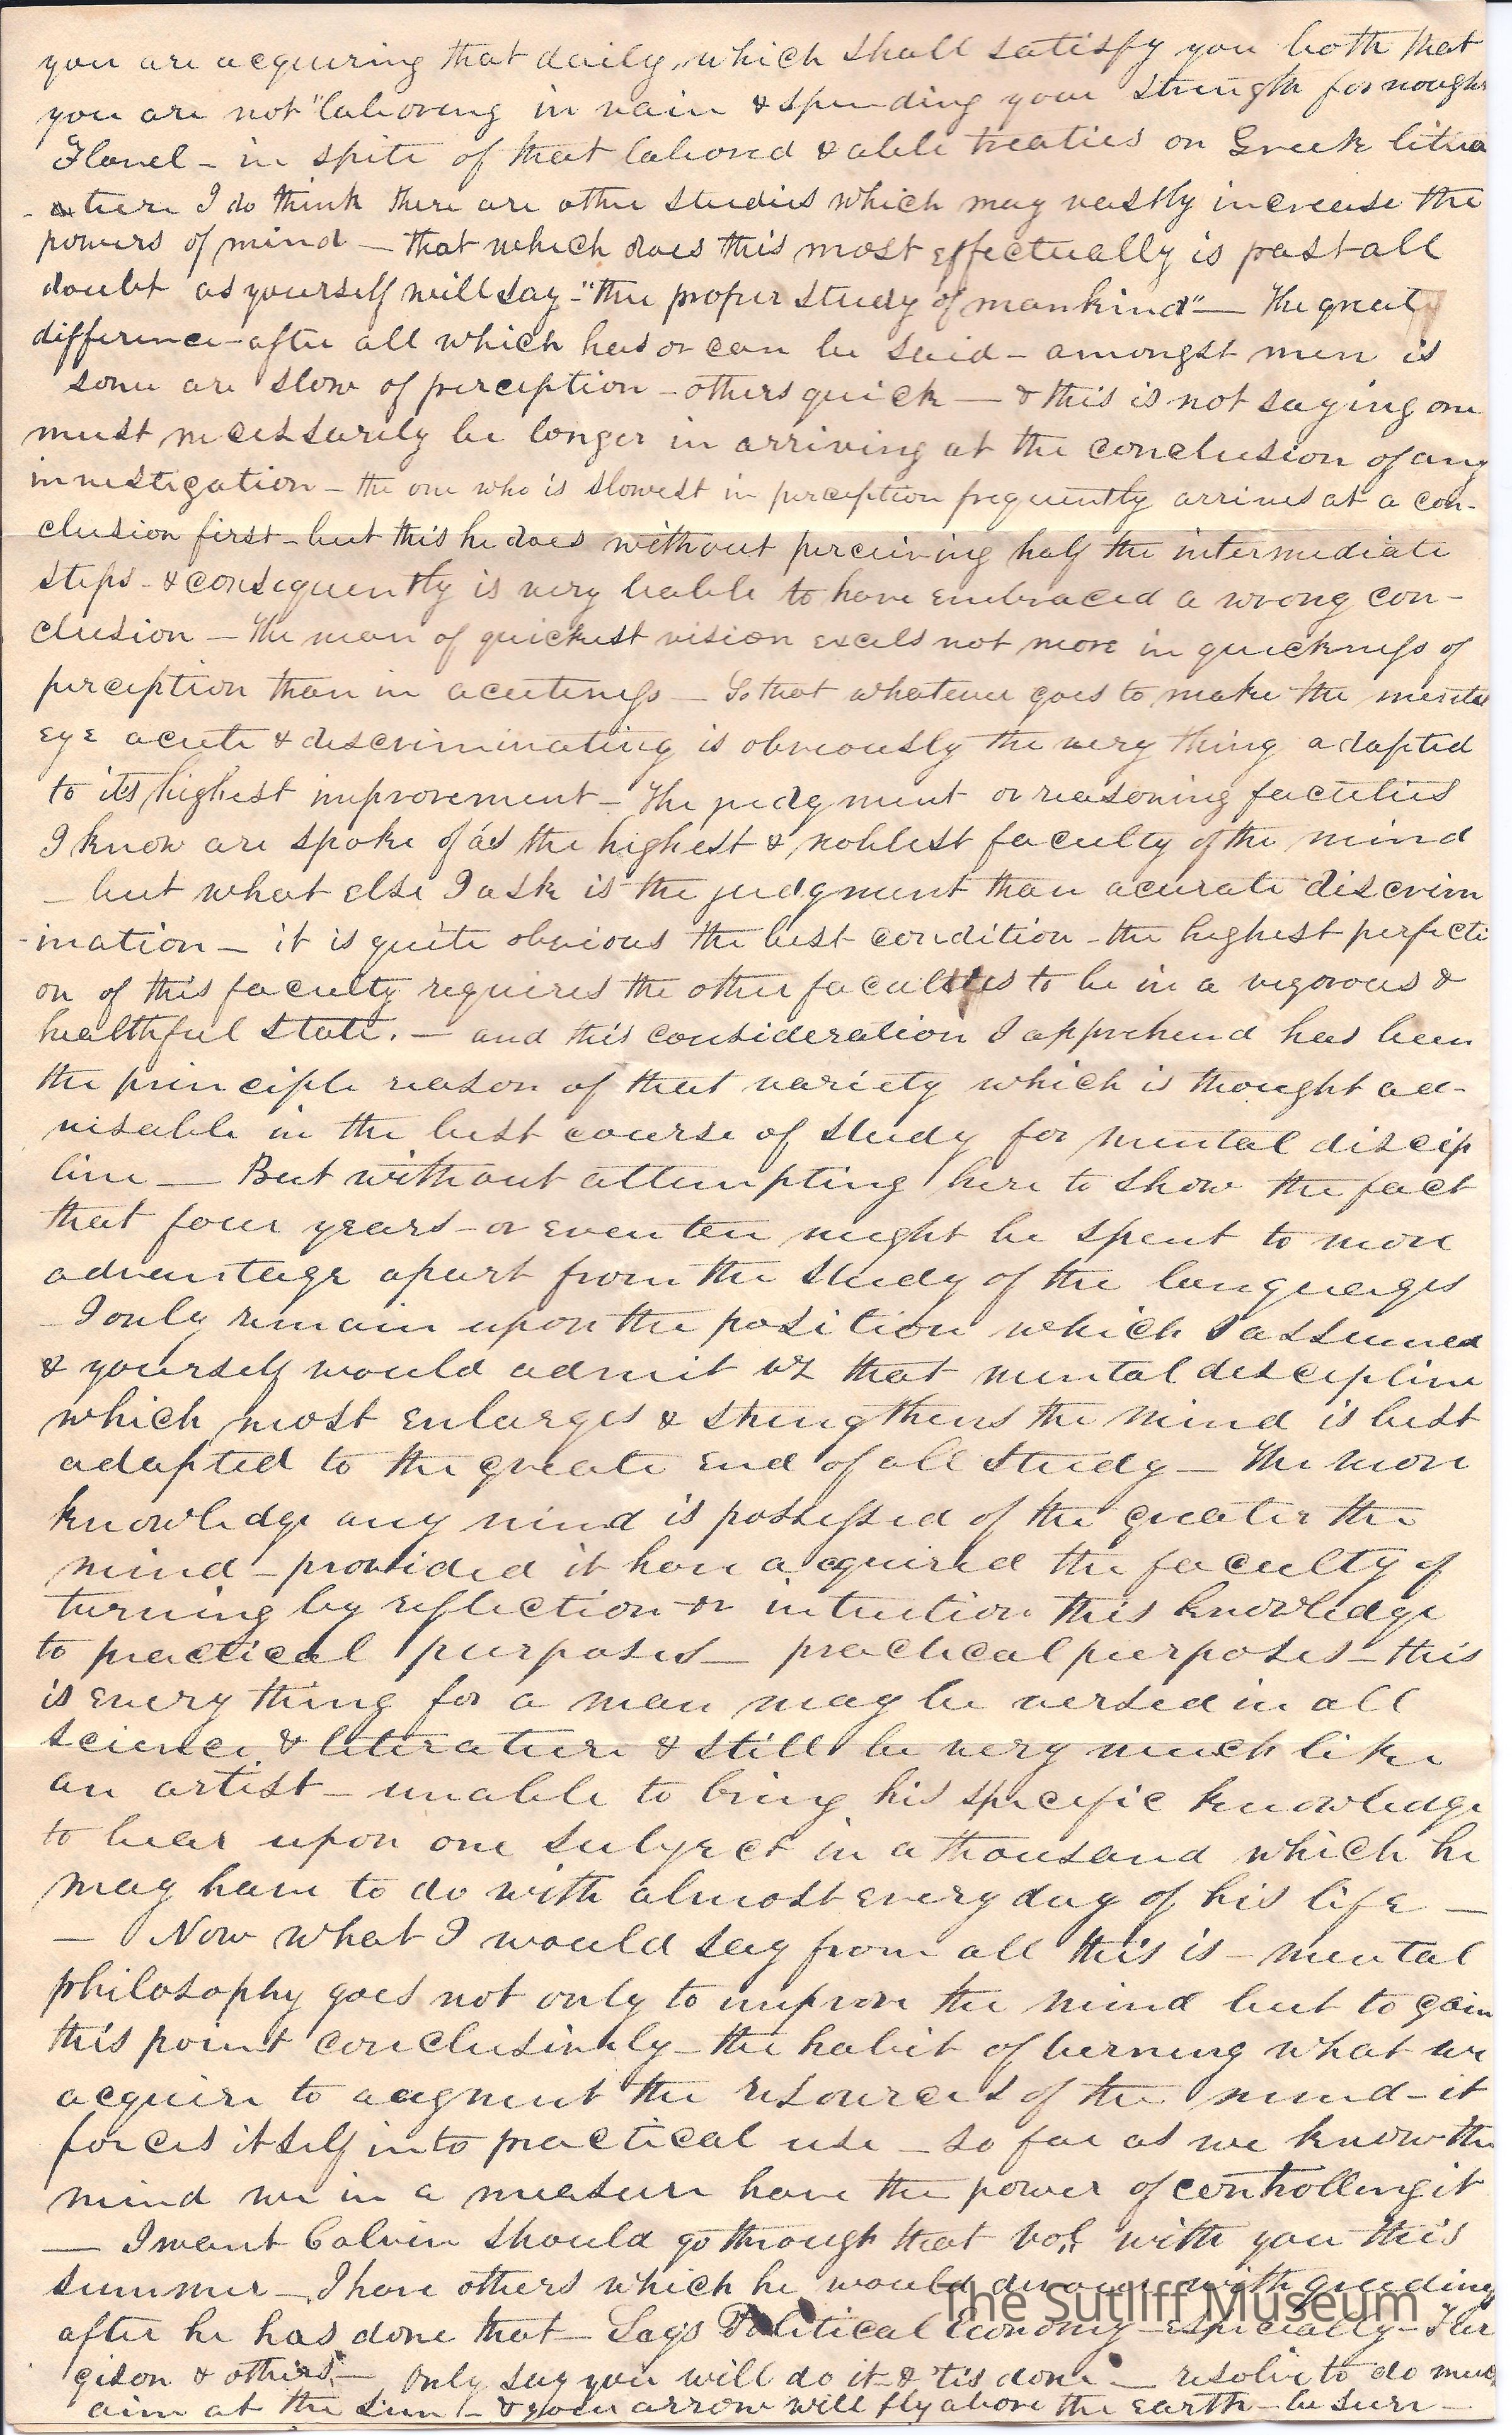 you are acquiring that daily, which shall satisfy you both that
you are not "laboring in vain & spending your strength for nought
Flavel - in spite of that labored & able treaties on Greek litera
- ture I do think there are other studies which may vastly increase the
powers of mind — that which does this most effectually is past all
doubt as yourself will say - "the proper study of mankind" — The great
difference - after all which has or can be said - amongst men is
some are slow of perception - others quick — & this is not saying one
must necessarily be longer in arriving at the conclusion of any
investigation - the one who is slowest in perception frequently arrives at a con-
clusion first - but this he does without perceiving half the intermediate
steps - & consequently is very liable to have embraced a wrong con-
clusion — The man of quickest vision excels not more in quickness of
perception than in acuteness — So that whatever goes to make the mental
eye acute & discriminating is obviously the very thing adapted
to its highest improvement - The judgment or reasoning faculties
I know are spoke of as the highest & noblest faculty of the mind
- but what else I ask is the judgment than acurate discrim
- ination - it is quite obvious the best condition - the highest perfecti
on of this faculty requires the other faculties to be in a vigorous &
healthful state. — and this consideration I apprehend has been
the principle reason of that variety which is thought ad-
visable in the best course of study for mental discip
line — But without attempting here to show the fact
that four years - or even ten might be spent to more
advantage apart from the study of the languages
- I only remain upon the position which I assumed
& yourself would admit viz that mental discipline
which most enlarges & strengthens the mind is best
adapted to the greate end of all study — The more
knowledge any mind is possessed of the greater the
mind - provided it have acquired the faculty of
turning by reflection or intuition this knowledge
to practical purposes — practical purposes - this
is every thing for a man may be versed in all
science & literature & still be very much like
an artist - unable to bring his specific knowledge
to bear upon one subject in a thousand which he
may have to do with almost every day of his life —
— Now what I would say from all this is - mental
philosophy goes not only to improve the mind but to gain
this point conclusively - the habit of turning what we
acquire to augment the resources of the mind - it
forces itself into practical use - so far as we know the
mind we in a measure have the power of controlling it
— I want Calvin should go through that vol. with you this
summer - I have others which he would devour with greeding
after he has done that - Say's Political Economy - especially - Fer
gison & others — only say you will do it & 'tis done — resolve to do much
aim at the sun - & your arrow will fly above the earth - be sure -
The Sutliff Museum